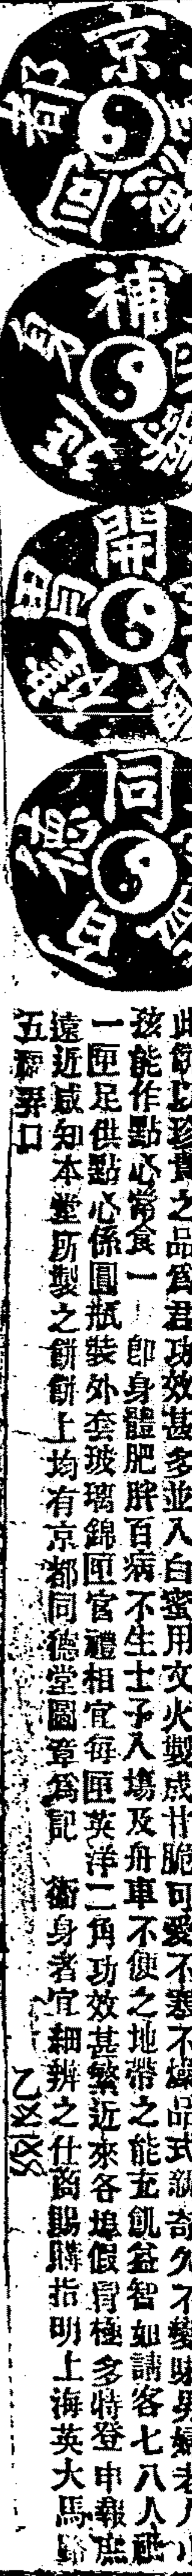 京都回
補身延
開胃養
同德百
此餅以珍貴之品爲君功效甚多並入白蜜用文火製成甘脆可愛不寒不燥品式新奇久不變味男婦老人小
孩能作點心常食一 即身體肥胖百病不生士子入塲及舟車不便之地帶之能充飢益智如請客七八人祗
一匣足供點心係圓瓶裝外套玻璃錦匣官禮相宜每匣英洋二角功效甚繁近來各埠假冒極多特登申報庶
遠近咸知本堂所製之餅餅上均有京都同德堂圖章爲記 衞身者宜細辨之仕商賜購指明上海英大馬路
五福弄口